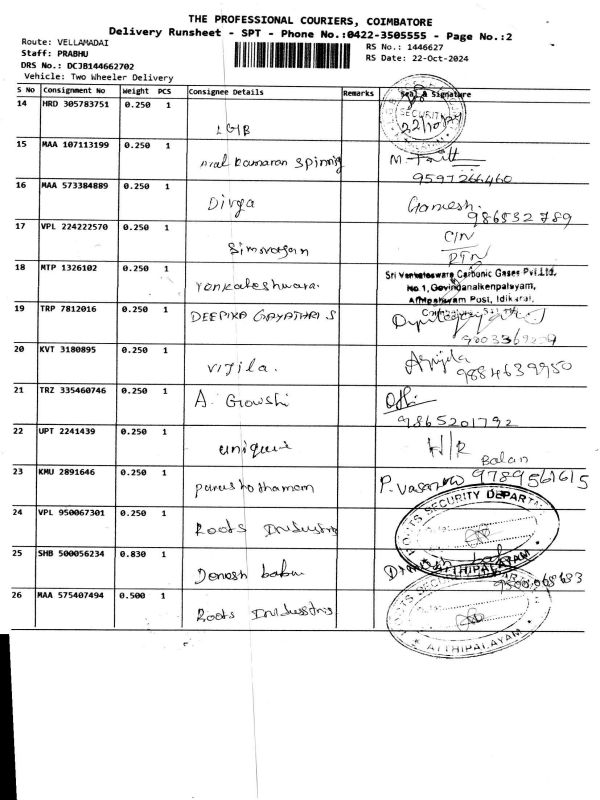 THE PROFESSIONAL COURIERS, COIMBATORE
Delivery Runsheet - SPT - Phone No.:0422-3505555 - Page No.:2
Route: VELLAMADAI
RS No.: 1446627
Staff: PRABHU
RS Date: 22-Oct-2024
DRS No.: DCJB144662702
Vehicle: Two Wheeler Delivery
S No Consignment No Weight PCS Consignee Details Remarks Seal & Signature
14 HRD 305783751 0.250 1 LGB SECURITY 22/10/24
15 MAA 107113199 0.250 1 spinning M. 9597266460
16 MAA 573384889 0.250 1 Divya Ganesh. 986532789
17 VPL 224222570 0.250 1 C/N RTN
18 MTP 1326102 0.250 1 Venkateshwara. Sri Venkateswara Carbonic Gases Pvt.Ltd.
No.1, Govindanaikenpalayam,
Athipalayam Post, Idikarai,
19 TRP 7812016 0.250 1 DEEPIKA GAYATHRI S
20 KVT 3180895 0.250 1 Vijila. 9884639950
21 TRZ 335460746 0.250 1 A. Gowshi 9865201792
22 UPT 2241439 0.250 1 unique H/R Balan
23 KMU 2891646 0.250 1 purushothamam P. 9789561615
24 VPL 950067301 0.250 1 Roots Industries ROOTS SECURITY DEPARTMENT ATTHIPALAYAM
25 SHB 500056234 0.830 1 Denesh babu
26 MAA 575407494 0.500 1 Roots Industries ROOTS SECURITY ATTHIPALAYAM